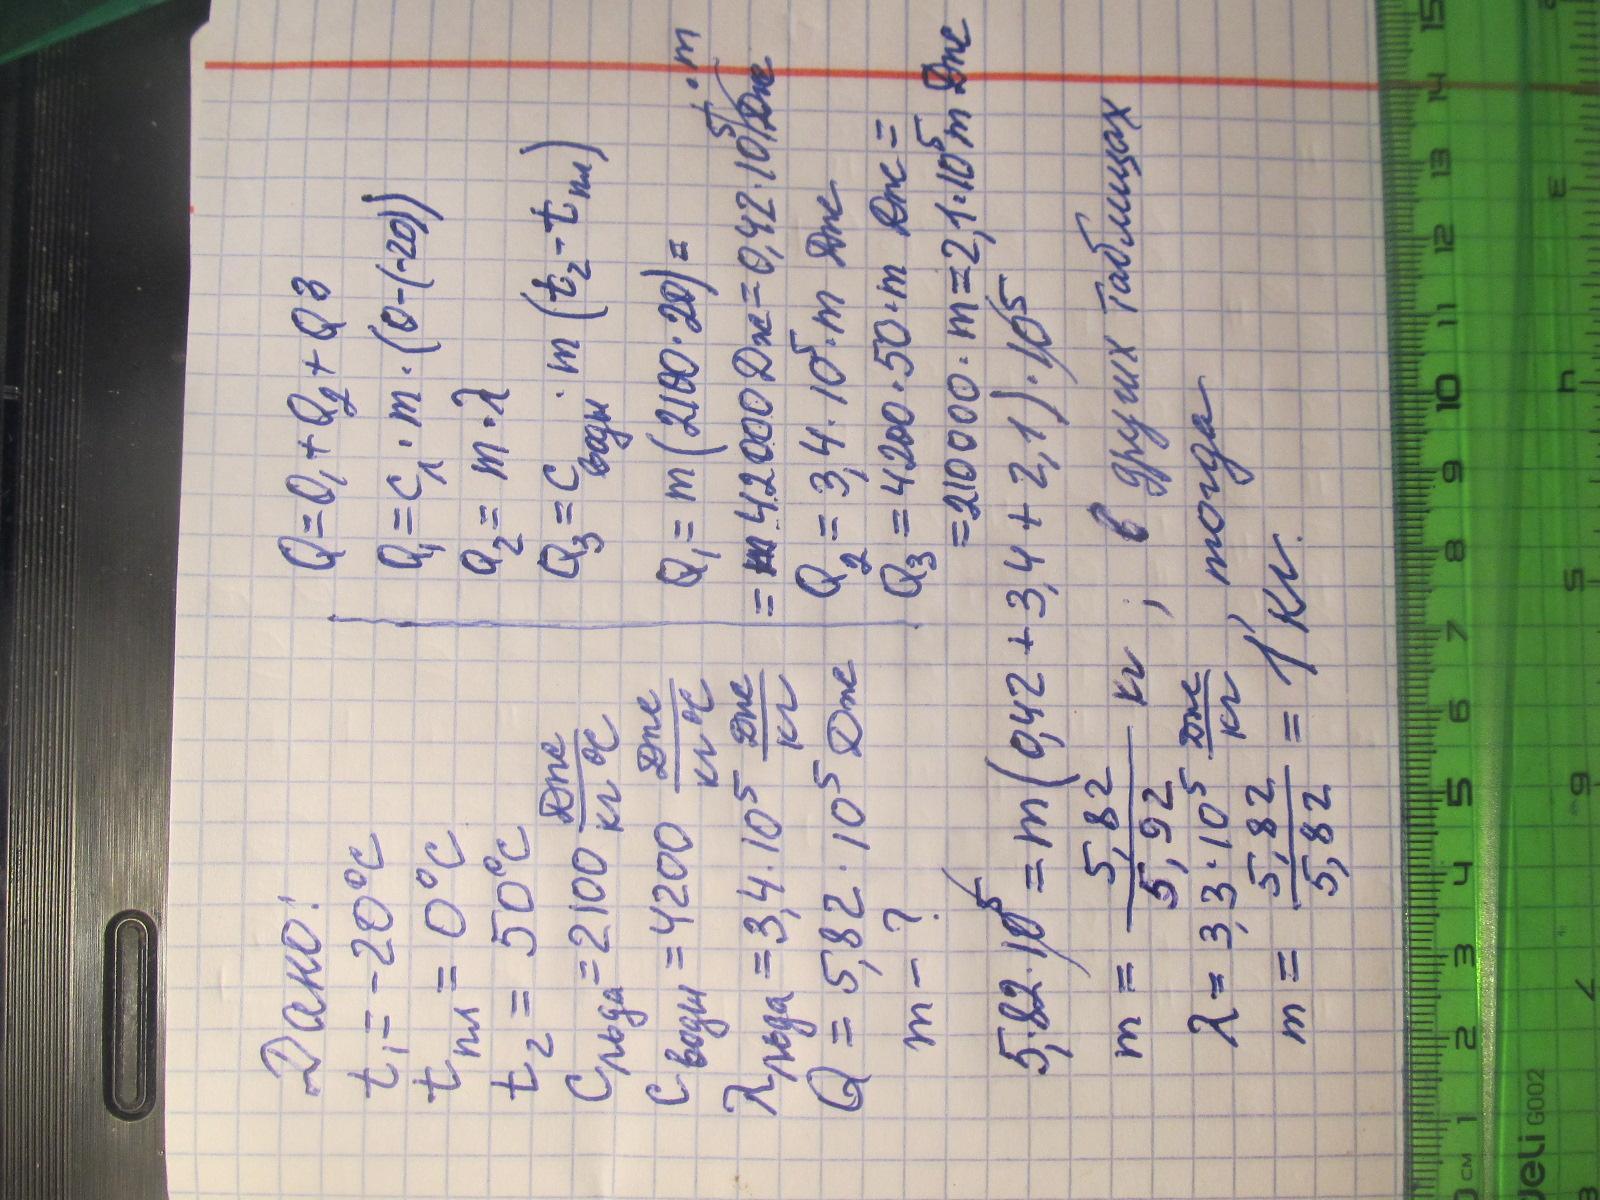 Дано:
t₁ = -20°C
tпл = 0°C
t₂ = 50°C
Cльда = 2100 Дж/кг°C
Cводы = 4200 Дж/кг°C
λльда = 3,4·10⁵ Дж/кг
Q = 5,82·10⁵ Дж
m - ?
Q = Q₁ + Q₂ + Q3
Q₁ = Cл·m·(0-(-20))
Q₂ = m·λ
Q₃ = Cводы·m (t₂ - tпл)
Q₁ = m(2100·20) =
= m 42000 Дж = 0,42·10⁵ Дж·m
Q₂ = 3,4·10⁵·m Дж
Q₃ = 4200·50·m Дж =
= 210000·m = 2,1·10⁵ m Дж
5,82·10⁵ = m(0,42 + 3,4 + 2,1)·10⁵
m = 5,82/5,92 кг ; в других таблицах
λ = 3,3·10⁵ Дж/кг, тогда
m = 5,82/5,82 = 1 кг.
15
14
13
12
11
10
9
8
7
6
5
4
3
2
1
CM
3
4
5
6
7
8
deli G002